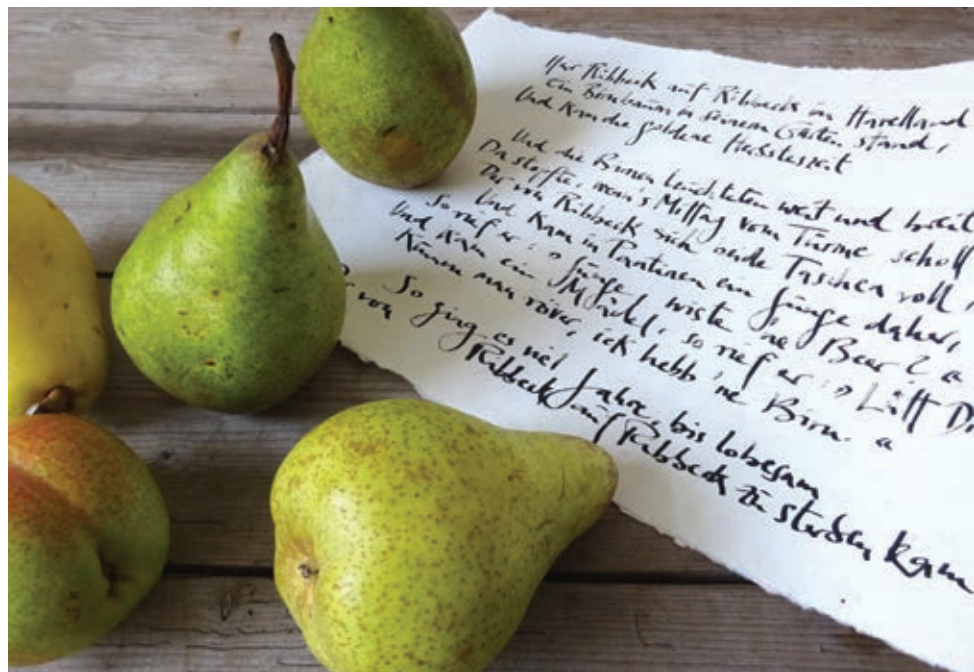 Herr Ribbeck auf Ribbeck im Havelland
Ein Birnbaum in seinem Garten stand,
Und kam die goldene Herbsteszeit
Und die Birnen leuchteten weit und breit
Da stopfte, wenn's Mittag vom Turme scholl
Der von Ribbeck sich beide Taschen voll,
Und kam in Pantinen ein Junge daher,
So rief er: » Junge wiste 'ne Beer? «
Und kam ein Mädel, so rief er: » Lütt Di
Kumm man röver, ick hebb 'ne Birn. «
So ging es viel Jahre, bis lobesam
r von Ribbeck auf Ribbeck zu sterben kam